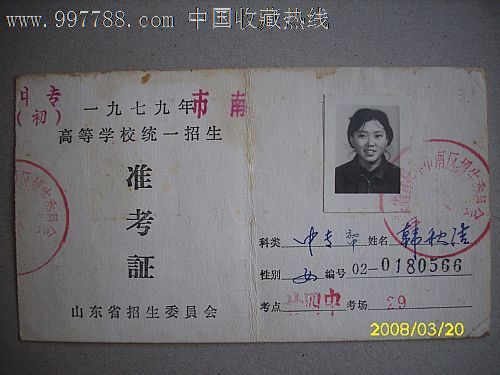 www.997788.com 中国收藏热线
中专
(初)
一九七九年 市南
高等学校统一招生
准考証
山东省招生委员会
科类 中专 姓名 韩秋洁
性别 女 编号 02-0180566
考点 四中 考场 29
2008/03/20